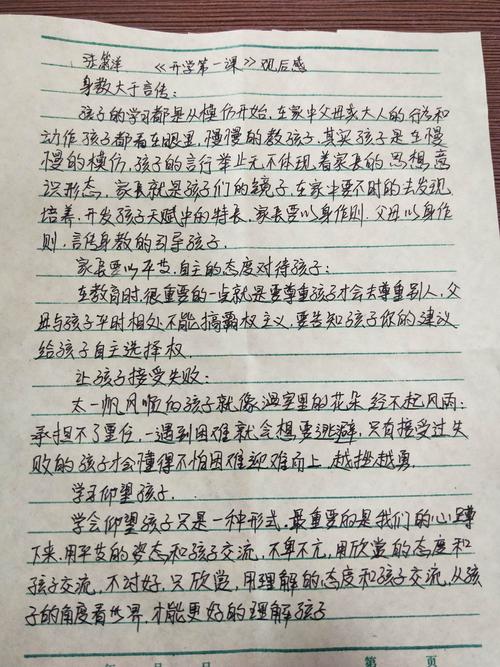 《开学第一课》观后感
身教大于言传：
孩子的学习都是从模仿开始，在家中父母亲大人的行为和
动作孩子都看在眼里，慢慢的教孩子，其实孩子是在慢
慢的模仿，孩子的言行举止无不体现着家长的思想，意
识形态，家长就是孩子们的镜子，在家中要不时的去发现
培养，开发孩子天赋中的特长，家长要以身作则，父母以身作
则，言传身教的引导孩子，
家长要以平等，自主的态度对待孩子：
在教育时，很重要的一点就是要尊重孩子才会去尊重别人，父
母与孩子平时相处不能搞霸权主义，要告知孩子你的建议
给孩子自主选择权，
让孩子接受失败：
太一帆风顺的孩子就像温室里的花朵经不起风雨；
承担不了重任，一遇到困难就会想要逃避，只有接受过失
败的孩子才会懂得不怕困难迎难而上，越挫越勇，
学习仰望孩子，
学会仰望孩子只是一种形式，最重要的是我们的心蹲
下来，用平等的姿态和孩子交流，不卑不亢，用欣赏的态度和
孩子交流，不讨好，只欣赏，用理解的态度和孩子交流，从孩
子的角度看世界，才能更好的理解孩子
年 月 日 第 页